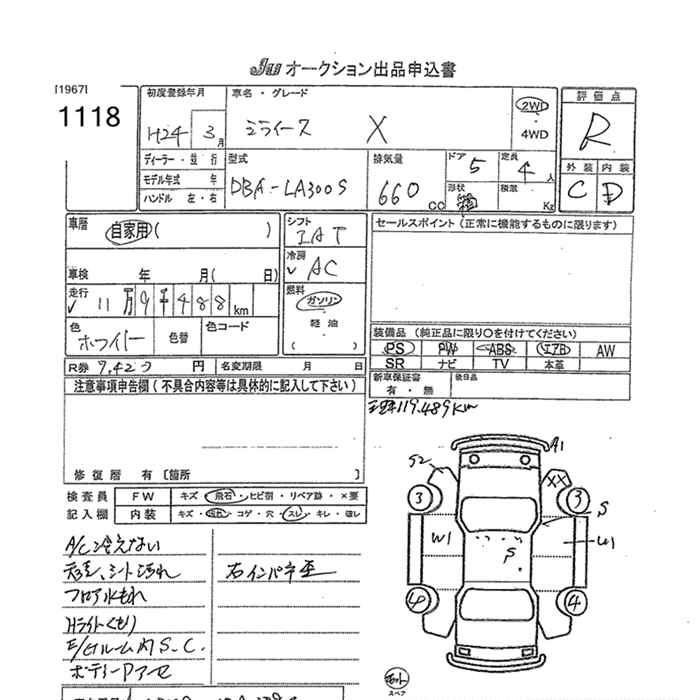 JU オークション出品申込書
[1967]
1118
初度登録年月
H24 3月
車名・グレード
ミライース X
2WD
4WD
評価点
R
ディーラー・並行
モデル年式 年
ハンドル 左・右
型式
DBA-LA300S
排気量
660 CC
ドア 5
定員 4 人
形状 箱
積載 Kz
外装 内装
C D
車歴
自家用 ( )
車検 年 月( 日)
走行
11万9千488km
色
ホワイパー
色替
色コード
シフト
IAT
冷房
AC
燃料
ガソリン
軽油
( )
セールスポイント (正常に機能するものに限ります)
装備品 (純正品に限り○を付けてください)
PS PW ABS エアB AW
SR ナビ TV 本革
R券 9,420 円
名変期限 月 日
新車保証書
有・無
後日品
119.489Km
注意事項申告欄 (不具合内容等は具体的に記入して下さい)
修復歴 有 [箇所 ]
検査員
記入欄
FW キズ・飛石・ヒビ割・リペア跡・×要
内装 キズ・汚れ・コゲ・穴・スレ・キレ・破レ
A/C冷えない
天張、シート汚れ
フロア水もれ
Hライトくもり
E/Gルーム内 S.C.
ボディーPアセ
右インパネ歪
S2
A1
XX
3
3
S
W1
U1
P
4
4
スペア